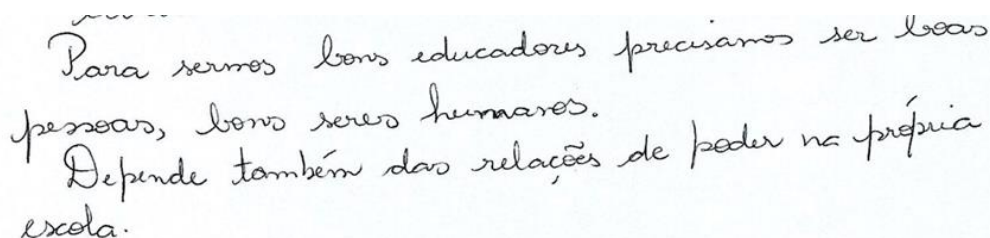 Para sermos bons educadores precisamos ser boas
pessoas, bons seres humanos.
Depende também das relações de poder na própria
escola.